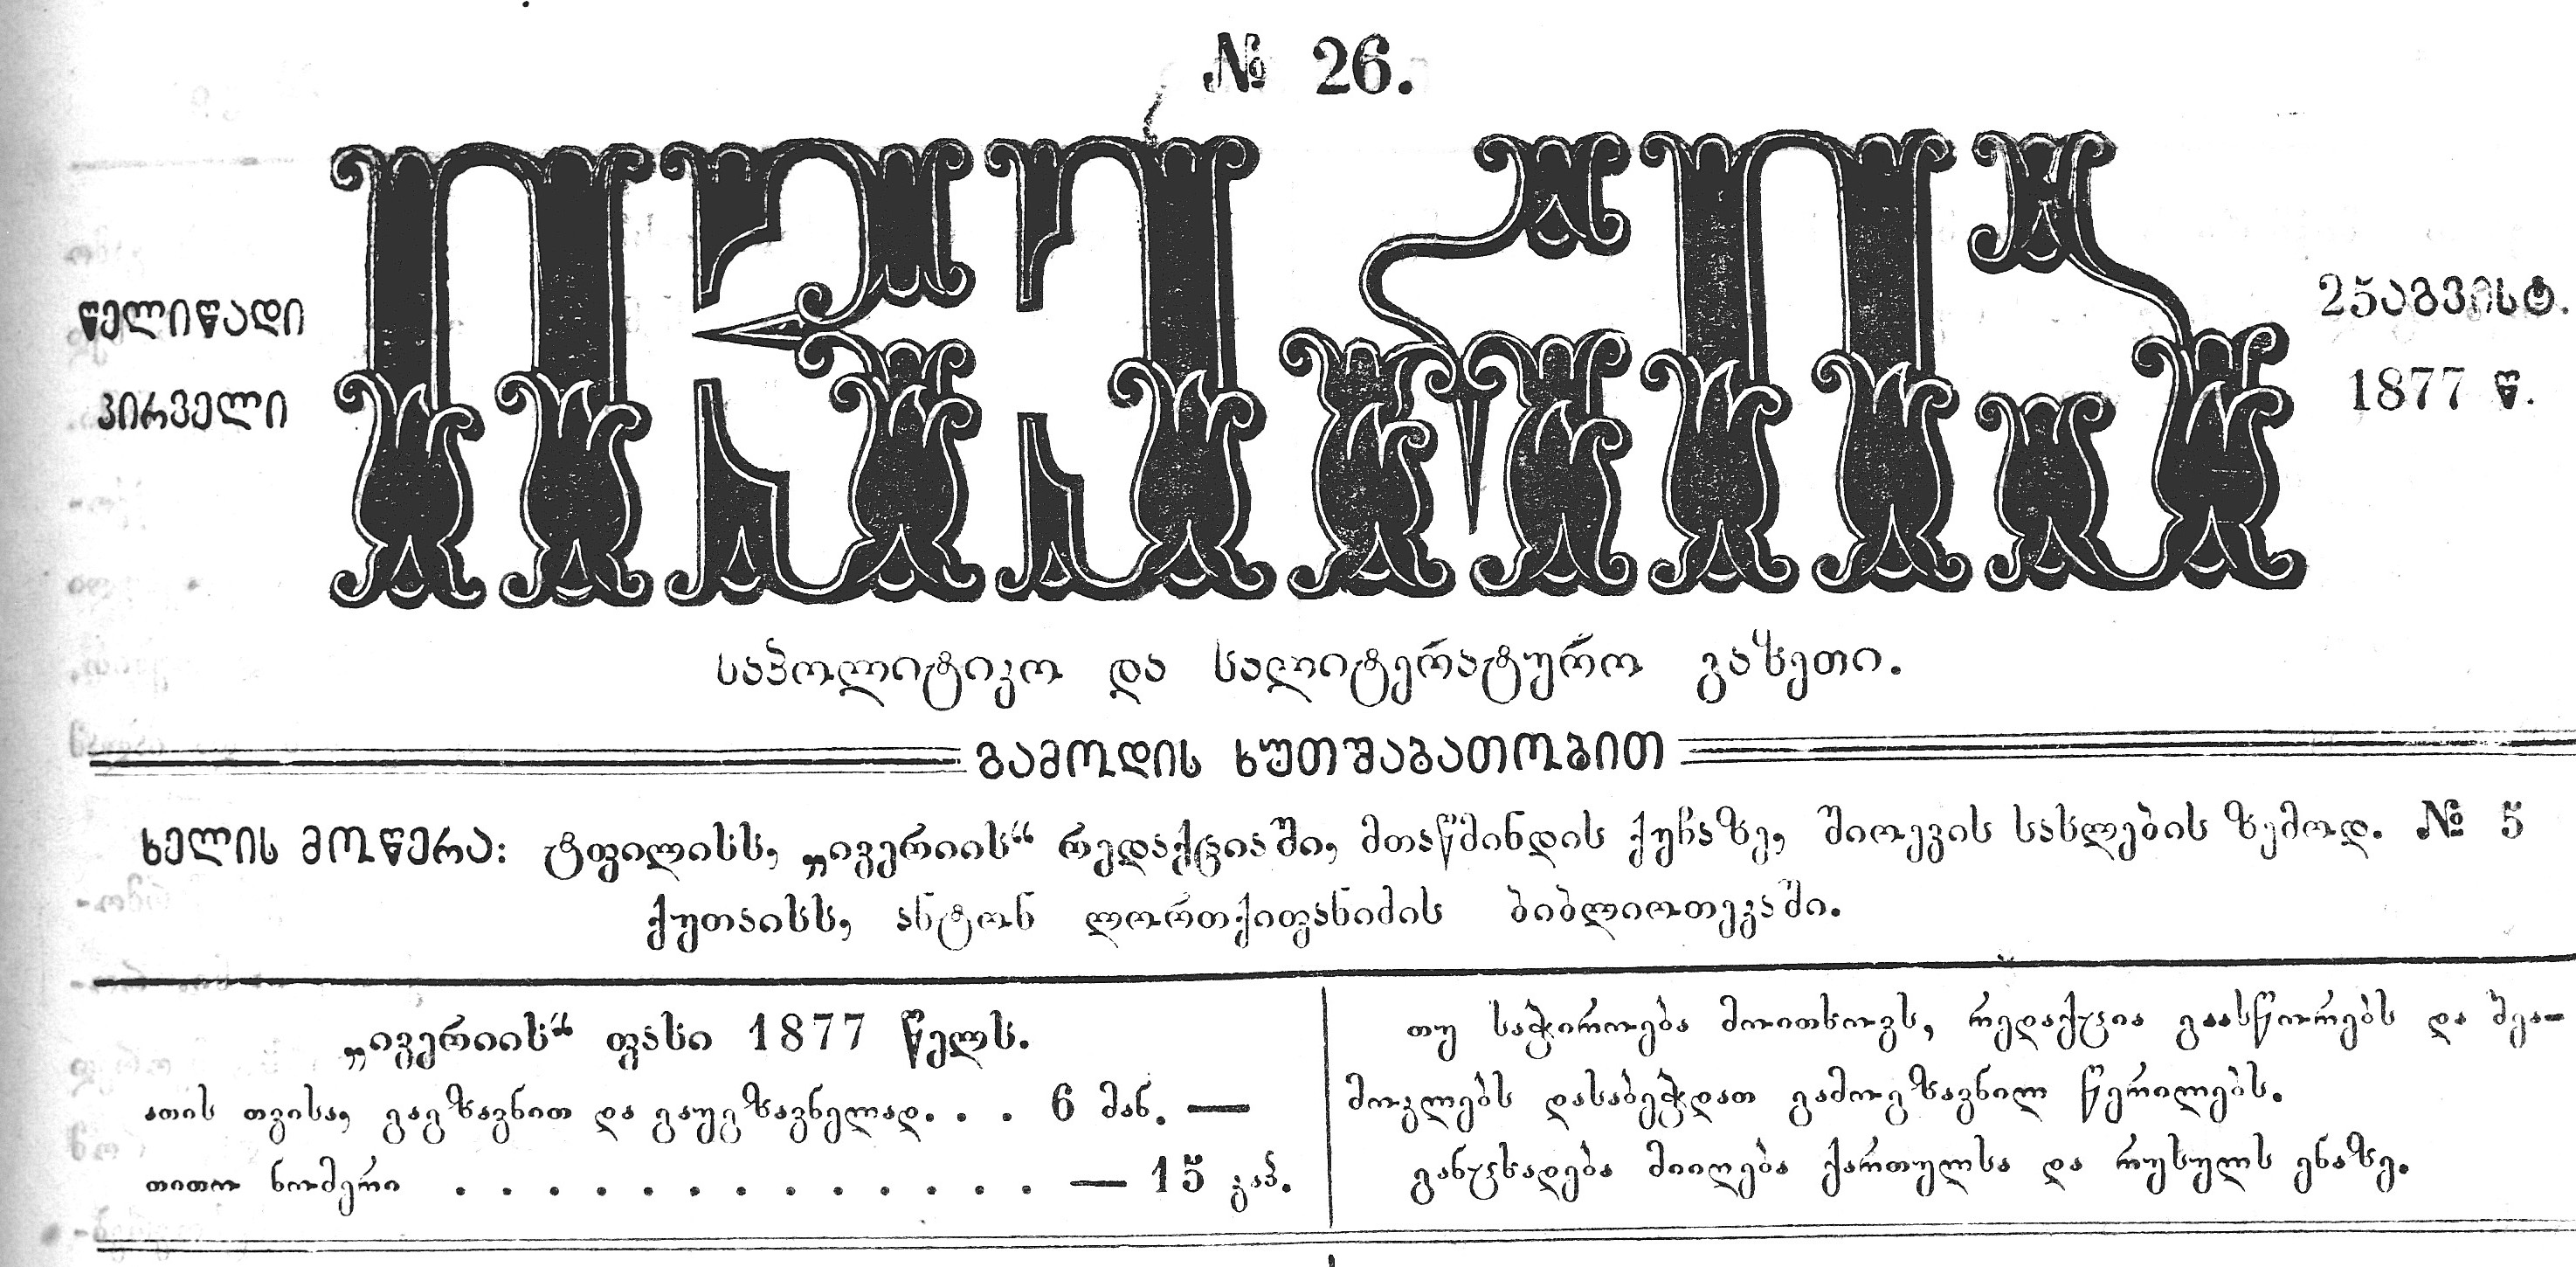 № 26.
ივერია
წელიწადი
პირველი
25 აგვისტ.
1877 წ.
საპოლიტიკო და სალიტერატურო გაზეთი.
გამოდის ხუთშაბათობით
ხელის მოწერა: ტფილისს, „ივერიის“ რედაქციაში, მთაწმინდის ქუჩაზე, შიოევის სახლების ზემოდ. № 5
ქუთაისს, ანტონ ლორთქიფანიძის ბიბლიოთეკაში.
„ივერიის“ ფასი 1877 წელს.
ათის თვისა, გაგზავნით და გაუგზავნელად. . . 6 მან. —
თითო ნომერი . . . . . . . . . . . . . — 15 კაპ.
თუ საჭიროება მოითხოვს, რედაქცია გაასწორებს და შეა-
მოკლებს დასაბეჭდათ გამოგზავნილ წერილებს.
განცხადება მიიღება ქართულსა და რუსულს ენაზე.